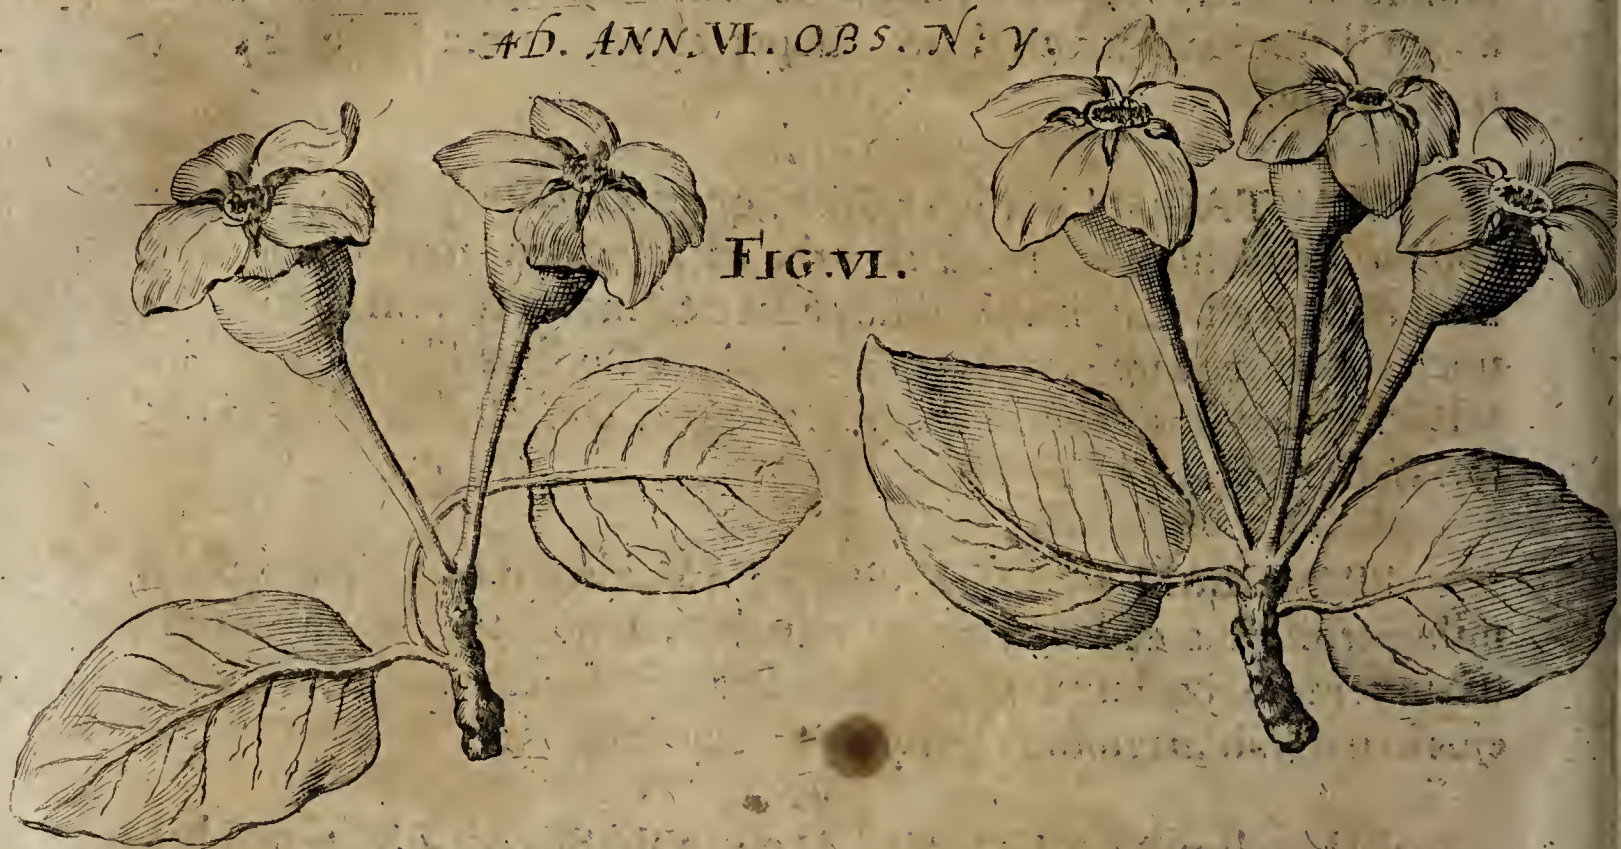 AD. ANN. VI. OBS. N: Y.
FIG. VI.